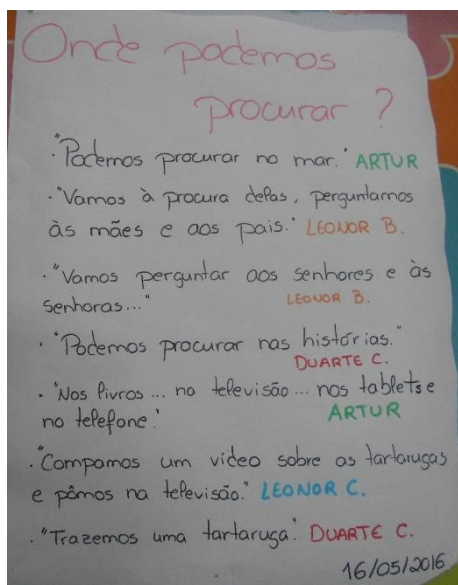 Onde podemos
procurar ?
· "Podemos procurar no mar." ARTUR
· "Vamos à procura delas, perguntamos
às mães e aos pais." LEONOR B.
· "Vamos perguntar aos senhores e às
senhoras..." LEONOR B.
· "Podemos procurar nas histórias."
DUARTE C.
· "Nos livros... na televisão... nos tablets e
no telefone." ARTUR
· "Compamos um vídeo sobre as tartarugas
e pômos na televisão." LEONOR C.
· "Trazemos uma tartaruga." DUARTE C.
16/05/2016